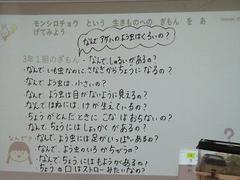 モンシロチョウ という 生きものへの ぎもん を あ
げてみよう
なんで アゲハのよう虫はくろいの？
3年1組のぎもん・なんで、しゅるいがあるの？
・なんで、いも虫なのに、さなぎからちょうになるの？
・なんで、よう虫は、小さいの？
・なんで、よう虫は目がないように見えるの？
・なんで、はねには、けが生えているの？
・ちょうがとんだときに こなはおちないの？
・なんで、ちょうにはしょっかくがあるの？
なんで？
・なんで、よう虫には足がいっぱいあるの？
・なんで、よう虫のいろがちがうの？
・なんで ちょうには もようがあるの？
・ちょうの口はストローみたいなの？